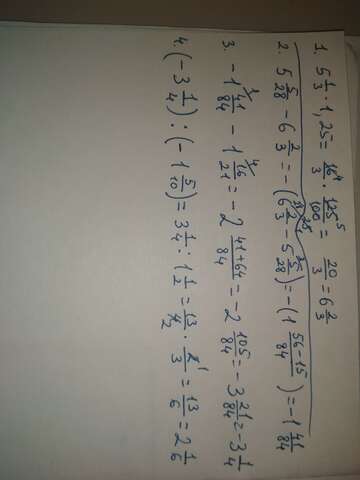 1. 5 1/3 · 1,25 = 16/3 · 125/100 = 20/3 = 6 2/3
2. 5 5/28 - 6 2/3 = -(6 2/3 - 5 5/28) = -(1 56-15/84) = -1 41/84
3. -1 41/84 - 1 16/21 = -2 41+64/84 = -2 105/84 = -3 21/84 = -3 1/4
4. (-3 1/4) : (-1 5/10) = 3 1/4 : 1 1/2 = 13/4 · 2/3 = 13/6 = 2 1/6